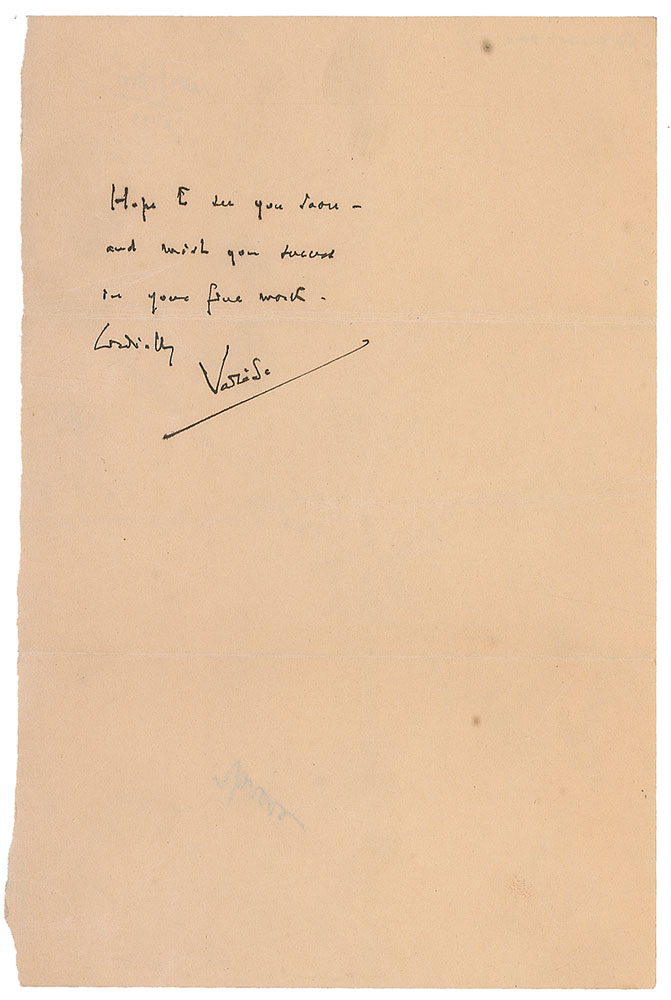 Hope to see you soon –
and wish you success
in your fine work.
Cordially
Varèse